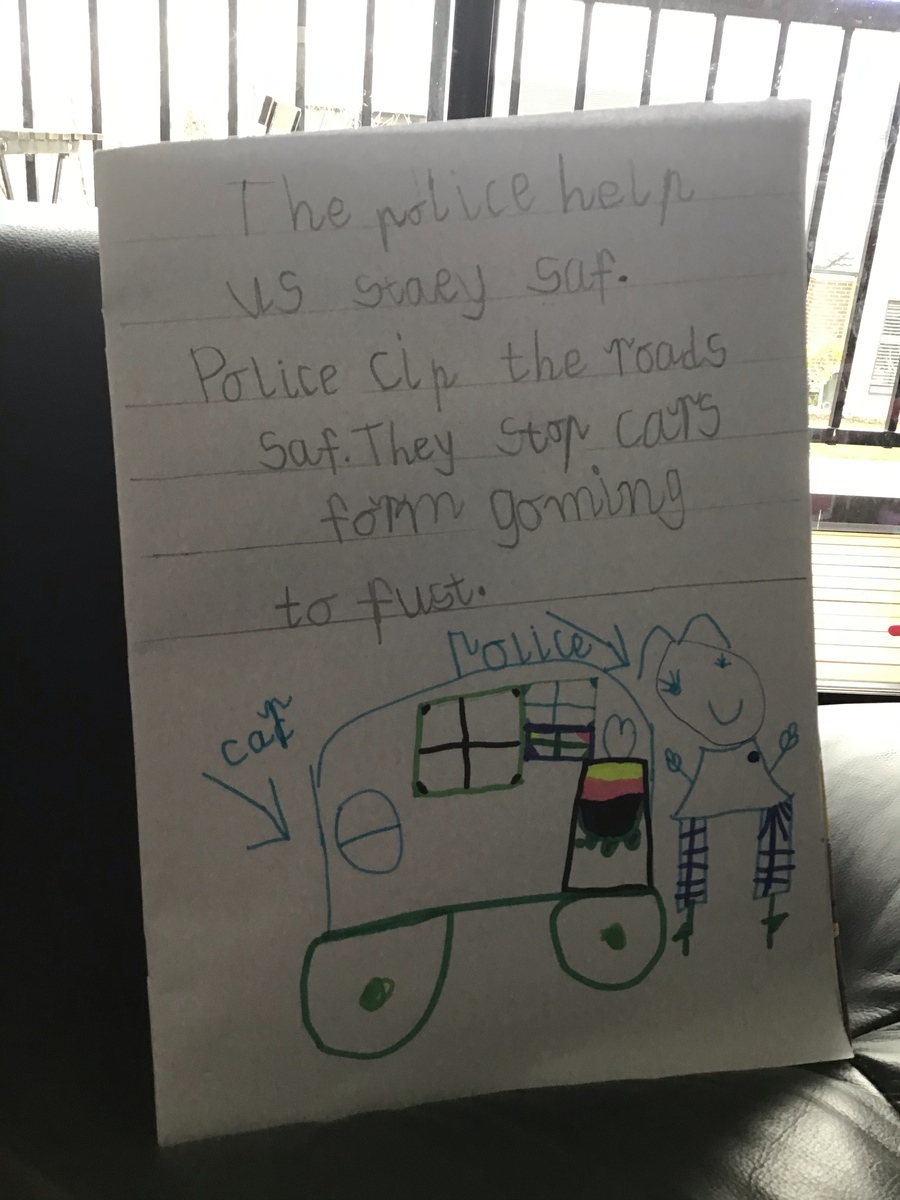 The police help
us staey saf.
Police cip the roads
saf. They stop cars
form goming
to fust.
Police
car